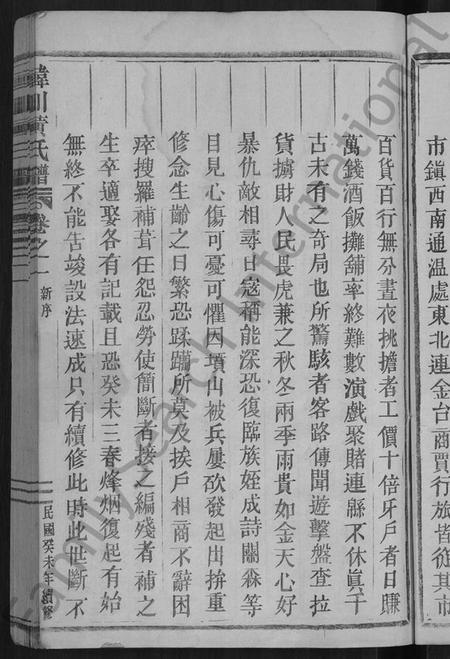 市鎮西南通溫處東北連金台商賈行旅皆從其市
百貨百行無分晝夜挑擔者工價十倍牙戶者日賺
萬錢酒飯攤舖率終難數演戲聚賭連縣不休真千
古未有之奇局也所驚駭者客路傳聞遊擊盤查拉
貨擄財人民畏虎兼之秋冬兩季雨貴如金天心好
暴仇敵相尋日寇稱能深恐復臨族姪成詩關森等
目見心傷可憂可懼因墳山被兵屢砍發起出拚重
修念生齡之日繁恐蹂躪所莫及挨戶相商不辭困
瘁搜羅補葺任怨忍勞使簡斷者接之編殘者補之
生卒適娶各有記載且恐癸未三春烽烟復起有始
無終不能告竣設法速成只有續修此時此世斷不
川黃氏譜
卷之一
新序
民國癸未年續修
FamilySearch International